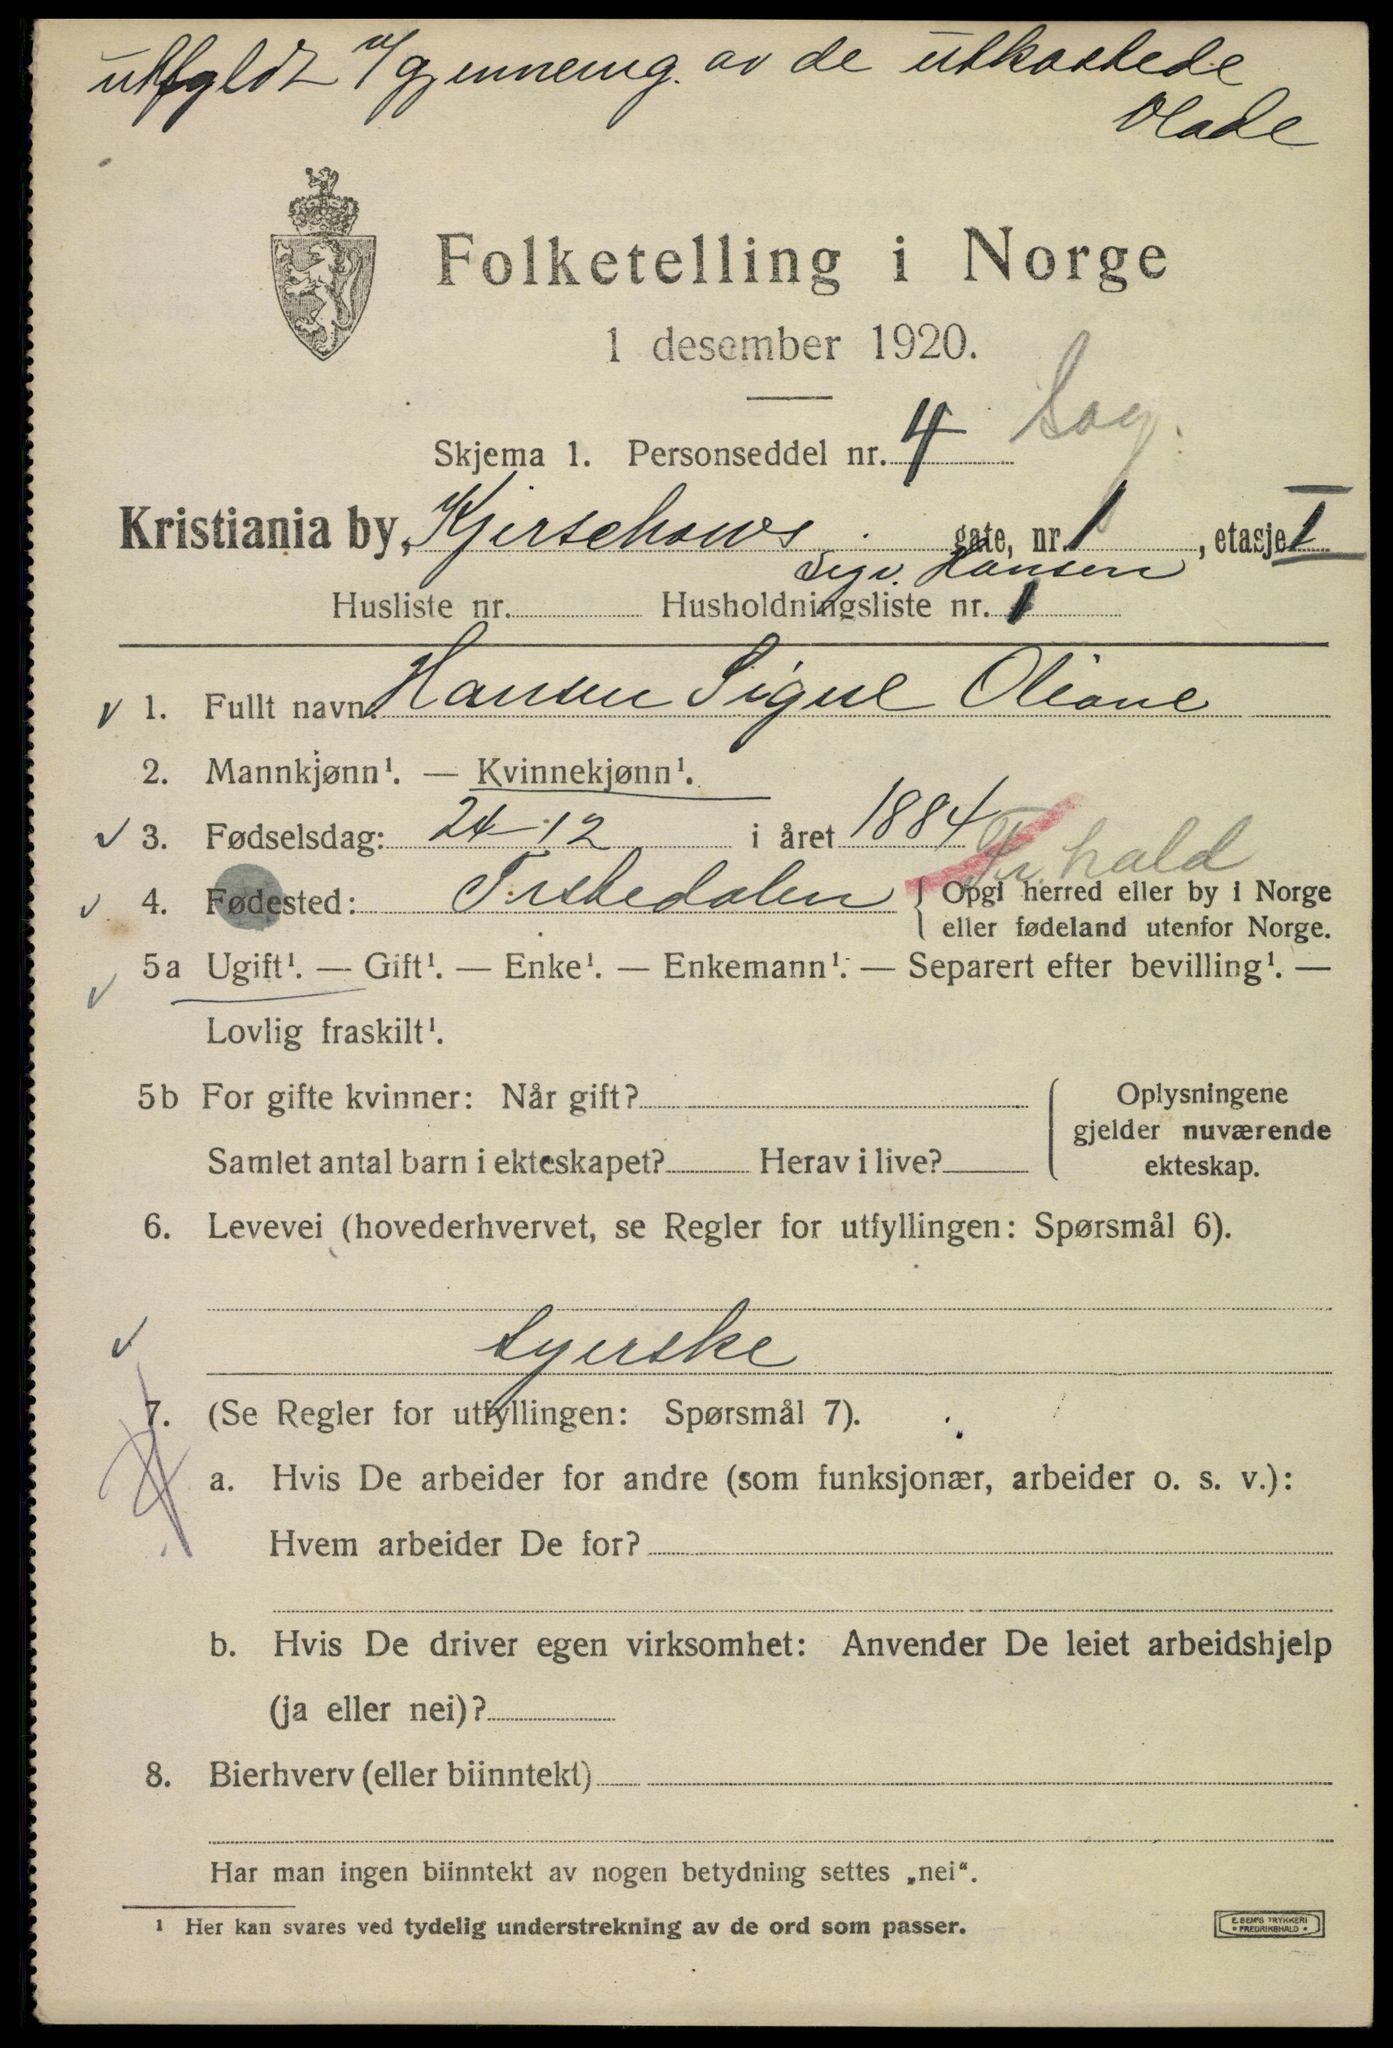 utfyldt v/gjennemg. av de utkastede
Olade
Folketelling i Norge
1 desember 1920.
Sag.
Skjema 1. Personseddel nr. 4
Kristiania by, Kjerschows gate, nr. 1, etasje I
Sigv. Hansen
Husliste nr. Husholdningsliste nr. 1
1. Fullt navn: Hansen Signe Oliane
2. Mannkjønn¹. — Kvinnekjønn¹.
3. Fødselsdag: 24-12 i året 1884
Fr.hald
4. Fødested: Tistedalen { Opgi herred eller by i Norge
eller fødeland utenfor Norge.
5a Ugift¹. — Gift¹. — Enke¹. — Enkemann¹. — Separert efter bevilling¹. —
Lovlig fraskilt¹.
5b For gifte kvinner: Når gift? Oplysningene
gjelder nuværende
Samlet antal barn i ekteskapet? Herav i live? ekteskap.
6. Levevei (hovederhvervet, se Regler for utfyllingen: Spørsmål 6).
Syerske
7. (Se Regler for utfyllingen: Spørsmål 7).
a. Hvis De arbeider for andre (som funksjonær, arbeider o. s. v.):
Hvem arbeider De for?
b. Hvis De driver egen virksomhet: Anvender De leiet arbeidshjelp
(ja eller nei)?
8. Bierhverv (eller biinntekt)
Har man ingen biinntekt av nogen betydning settes „nei“.
¹ Her kan svares ved tydelig understrekning av de ord som passer.
E. SEM'S TRYKKERI
• FREDRIKSHALD •